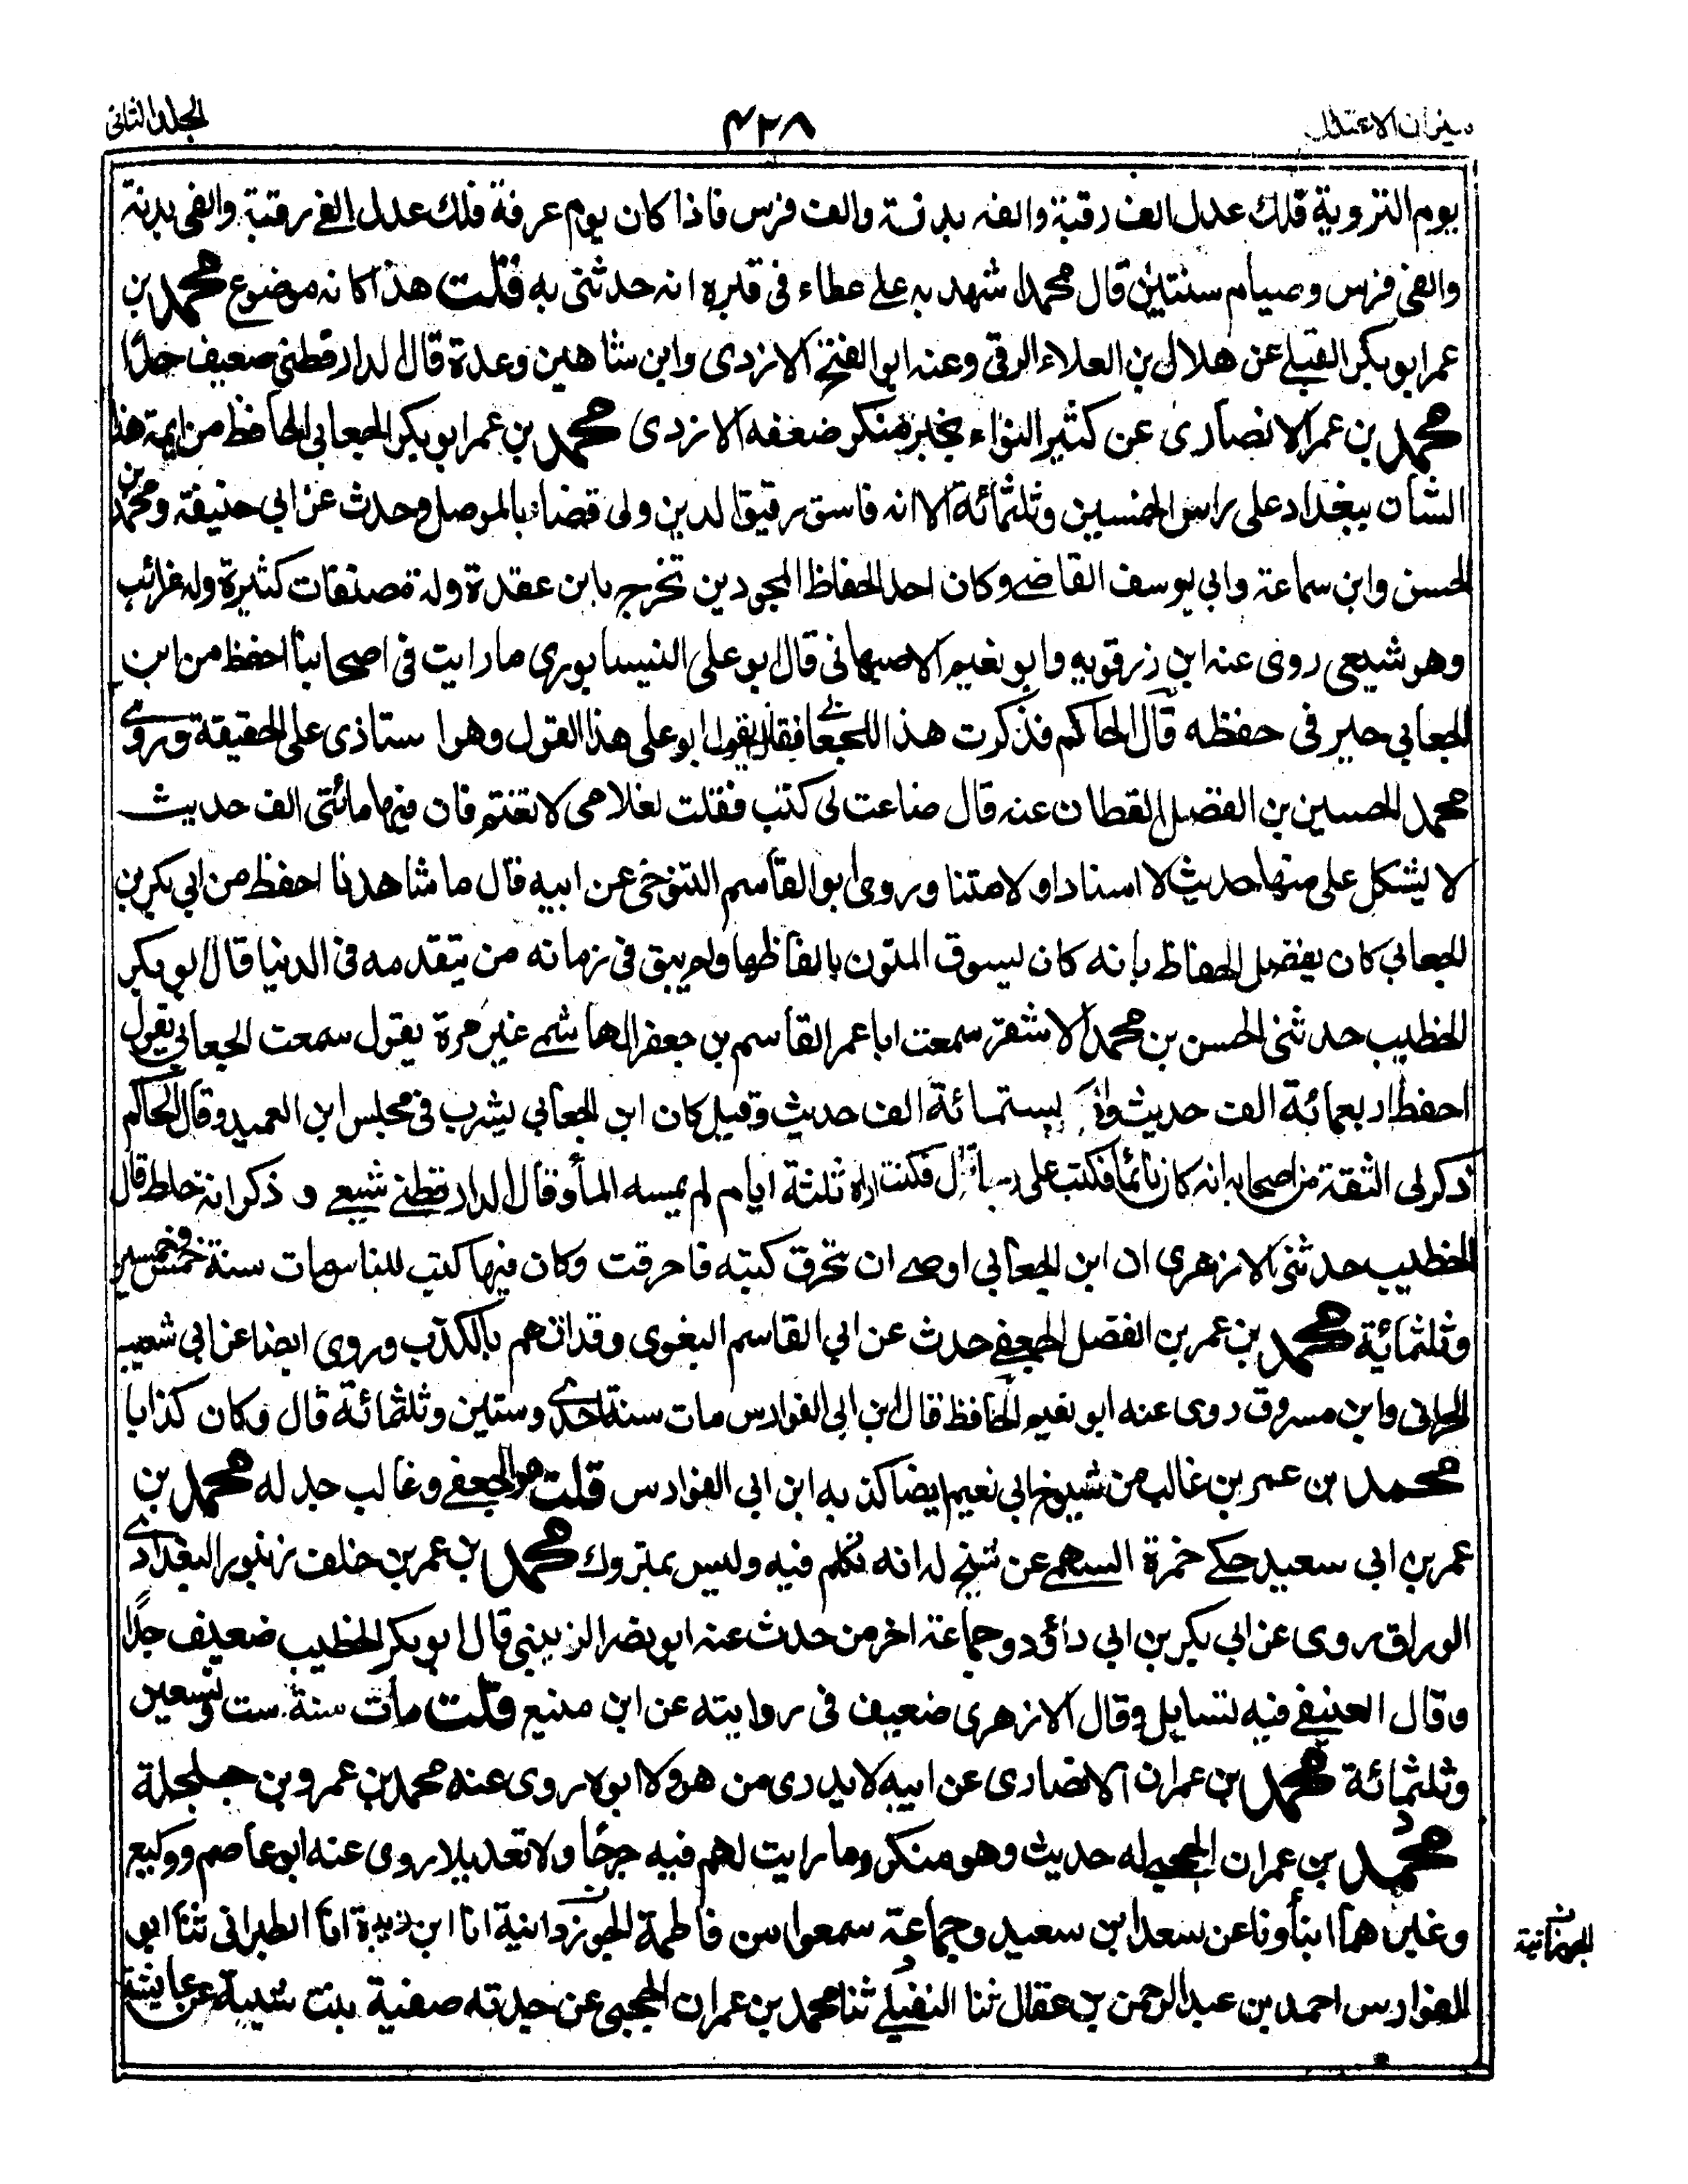 ميزان الاعتدال
۴۲۸
الجلد الثانى
يوم التروية فلك عدل الف رقبة والف بدنة والف فرس فاذا كان يوم عرفة فلك عدل الفى رقبة والفى بدنة
والفى فرس وصيام سنتين قال محمد اشهد به على عطاء فى قبره انه حدثنى به قلت هذا كانه موضوع محمد بن
عمر ابو بكر القبلى عن هلال بن العلاء الرقى وعنه ابو الفتح الازدى وابن شاهين وعدة قال الدارقطنى ضعيف جدًا
محمد بن عمر الانصارى عن كثير النواء بخبر منكر ضعفه الازدى محمد بن عمر ابو بكر الجعابى الحافظ من ايمة هذا
الشان ببغداد على راس الخمسين وثلثمائة الا انه فاسق رقيق الدين ولى قضاء بالموصل وحدث عن ابى حنيفة ومحمد بن
الحسن وابن سماعة وابى يوسف القاضى وكان احد الحفاظ المجودين تخرج بابن عقدة وله مصنفات كثيرة وله غرائب
وهو شيعى روى عنه ابن زرقويه وابو نعيم الاصبهانى قال ابو على النيسابورى ما رايت فى اصحابنا احفظ من ابن
الجعابى حير فى حفظه قال الحاكم فذكرت هذا للجعابى فقال يقول ابو على هذا القول وهو استاذى على الحقيقة وروى
محمد الحسين بن الفضل القطان عنه قال ضاعت لى كتب فقلت لغلامى لا تغتم فان فيها مائتى الف حديث
لا يشكل على منها حديث لا اسنادا ولا متنا وروى ابو القاسم التنوخى عن ابيه قال ما شاهدنا احفظ من ابى بكر بن
الجعابى كان يفضل الحفاظ بانه كان يسوق المتون بالفاظها ولم يبق فى زمانه من يتقدمه فى الدنيا قال ابو بكر
الخطيب حدثنى الحسن بن محمد الاشقر سمعت ابا عمر القاسم بن جعفر الهاشمى غير مرة يقول سمعت الجعابى يقول
احفظ اربعمائة الف حديث بستمائة الف حديث وقيل كان ابن الجعابى يشرب فى مجلس ابن العميد وقال الحاكم
ذكر لى الثقة من اصحابه انه كان نائما فكتب على فكنت اراه ثلثة ايام لم يمسه الماء وقال الدارقطنى شيعى و ذكر انه خلط قال
الخطيب حدثنى الازهرى ان ابن الجعابى اوصى ان تحرق كتبه فاحرقت وكان فيها كتب للناس مات سنة خمس وخمسين
وثلثمائية محمد بن عمر بن الفضل الجعفى حدث عن ابى القاسم البغوى وقد اتهم بالكذب وروى ايضا عن ابى شعيب
الحرانى وابن مسروق روى عنه ابو نعيم الحافظ قال ابن ابى الفوارس مات سنة احدى وستين وثلثمائة قال وكان كذابا
محمد بن عمر بن غالب من شيوخ ابى نعيم ايضا كذبه ابن ابى الفوارس قلت هو الجعفى وغالب جد له محمد بن
عمر بن ابى سعيد حكى حمزة السهمى عن شيخ له انه تكلم فيه وليس بمتروك محمد بن عمر بن خلف زنبور البغدادى
الوراق روى عن ابى بكر بن ابى داؤد وجماعة اخر من حدث عنه ابو نصر الزينبى قال ابو بكر الخطيب ضعيف جدًا
وقال العتيقى فيه تساهل وقال الازهرى ضعيف فى روايته عن ابن منيع قلت مات سنة ست وتسعين
وثلثمائة محمد بن عمران الانصارى عن ابيه لا يدرى من هو ولا ابوه روى عنه محمد بن عمرو بن حلحلة
محمد بن عمران الحجبى له حديث وهو منكر وما رايت لهم فيه جرحًا ولا تعديلا روى عنه ابو عاصم ووكيع
وغيرهما انبأونا عن سعد ابن سعيد وجماعة سمعوا من فاطمة الجوزدانية انا ابن ريذة انا الطبرانى ثنا ابو
الفوارس احمد بن عبد الرحمن بن عقال ثنا النفيلى ثنا محمد بن عمران الحجبى عن جدته صفية بنت شيبة عن عايشة